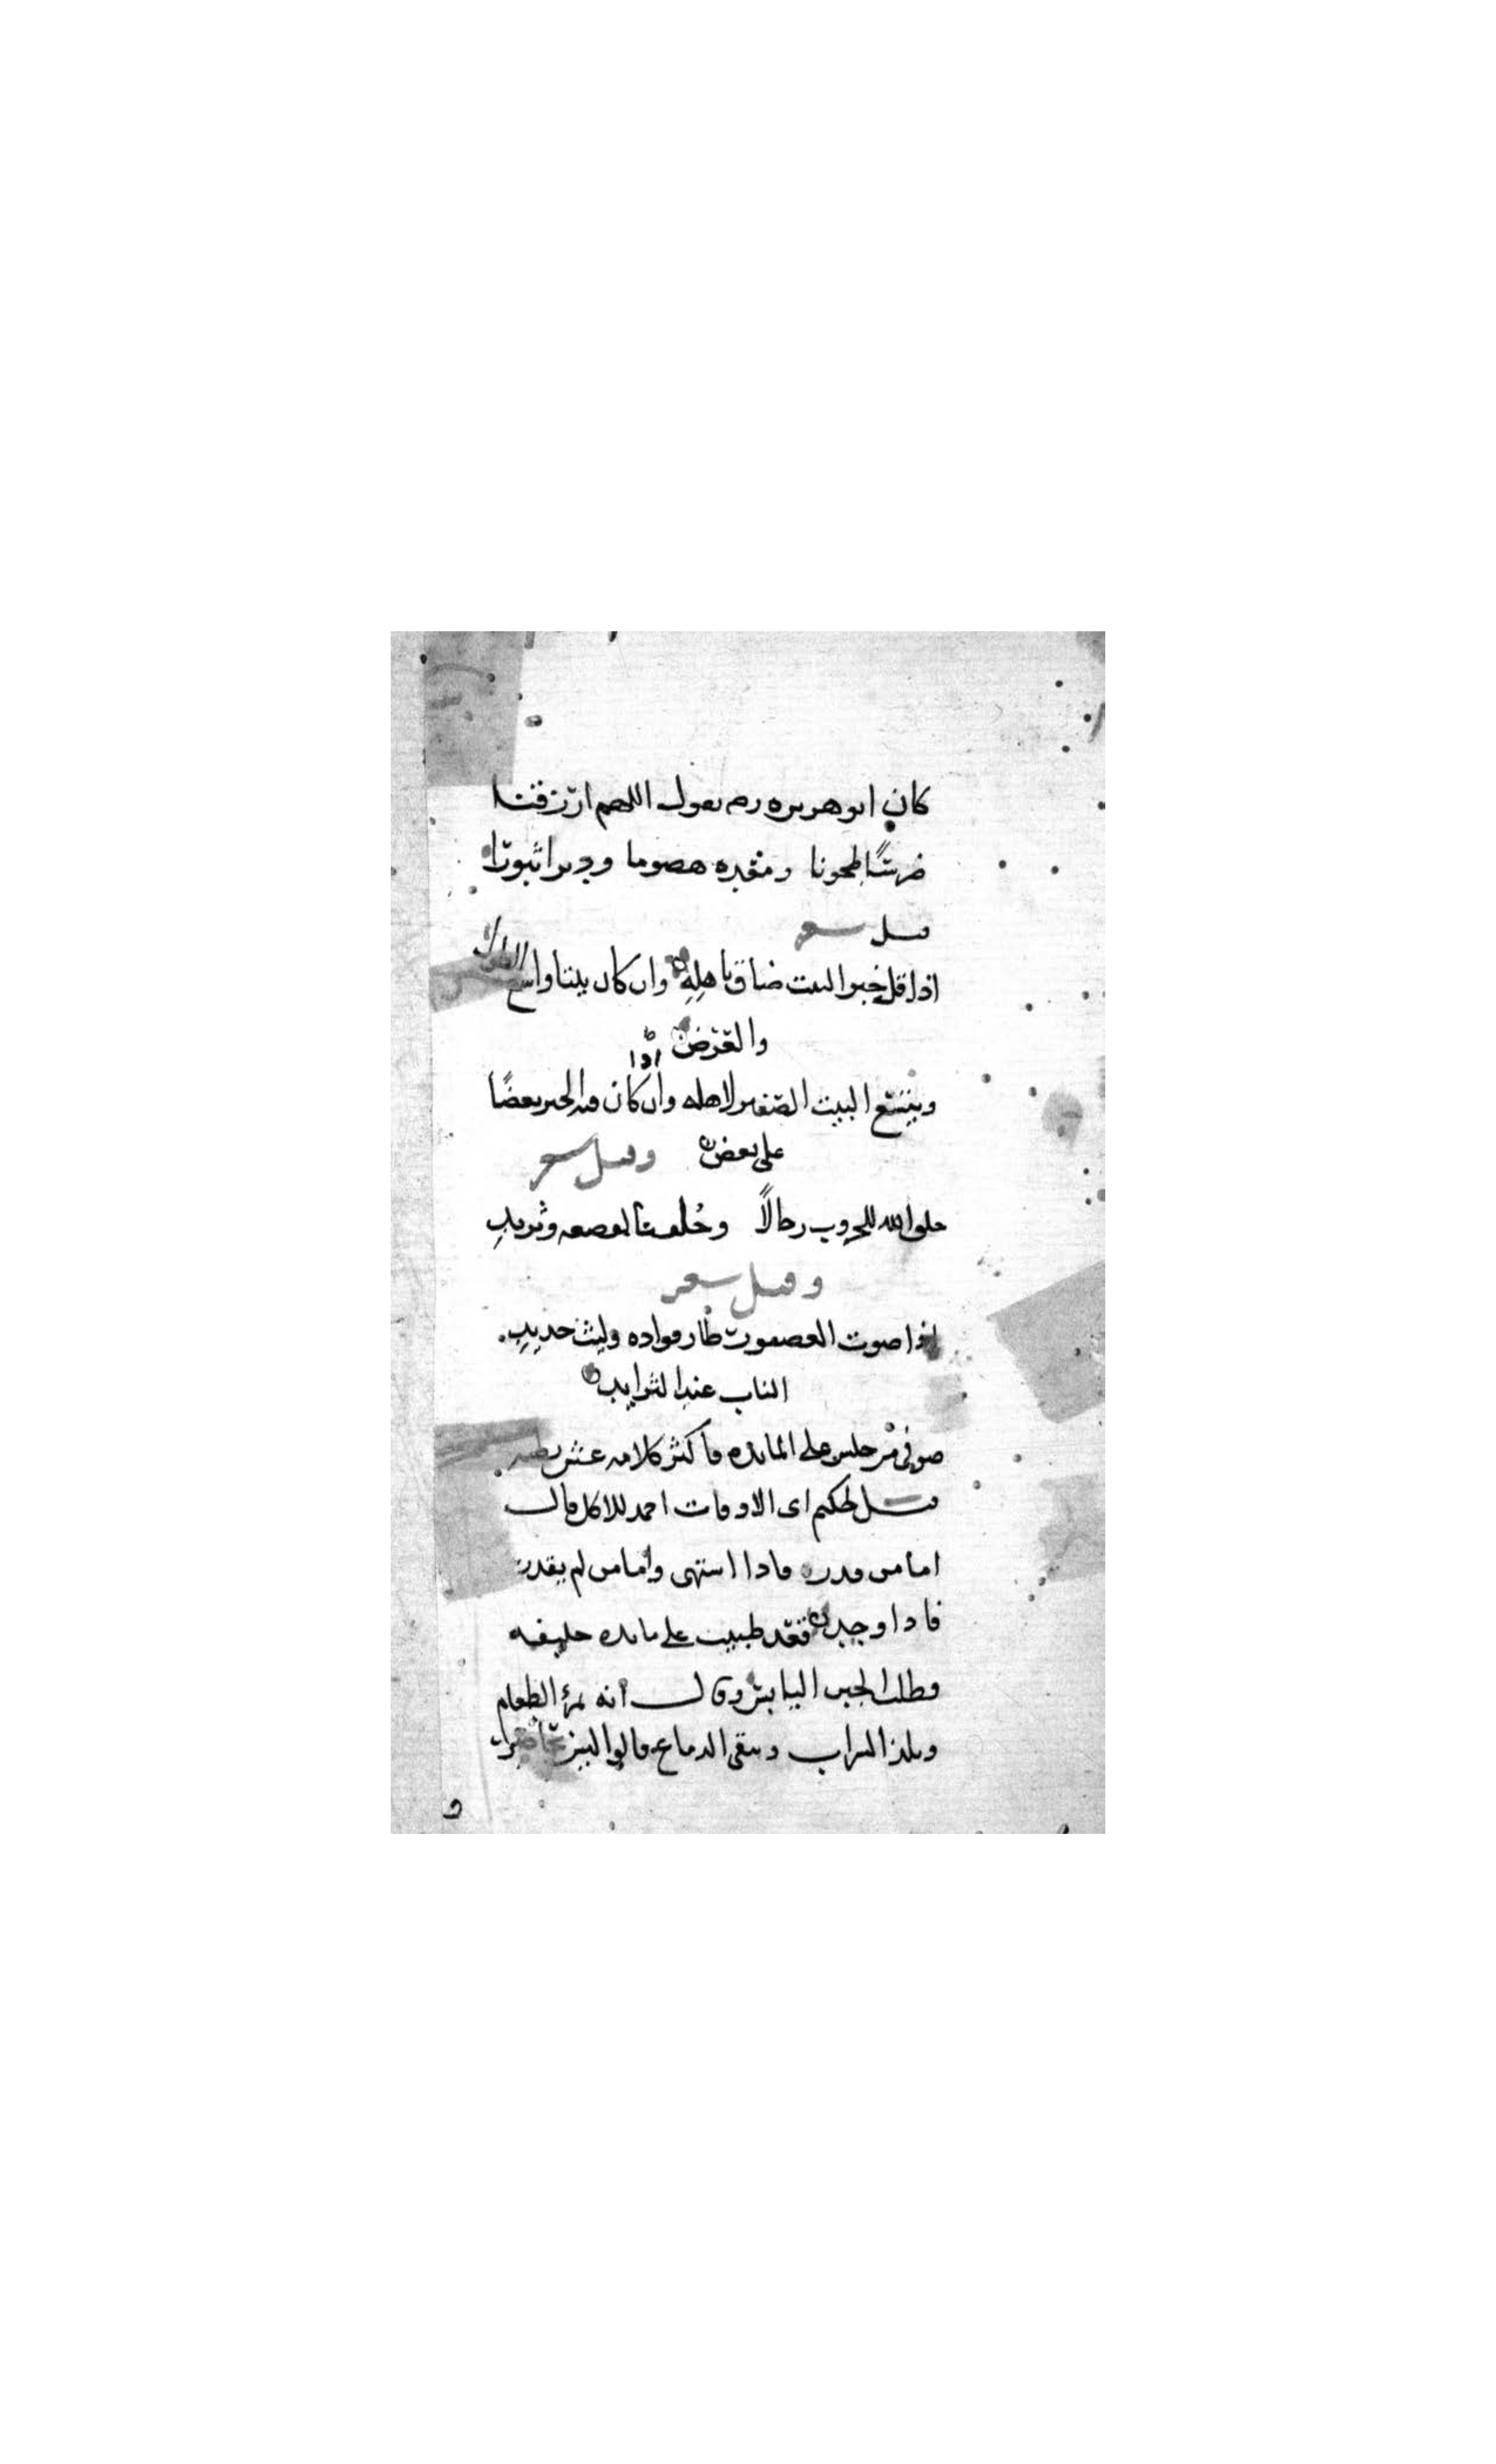 كان ابو هريره رصه يقول اللهم ارزقنا
ضرسًا طحونا ومعده هضوما ودبرا نثورا
قيل شعر
اذا قل خبز البيت ضاق باهله وان كان بيتا واسع الطول
والعرض
ويتسع البيت الصغير لاهله وان كان فيه الخبز بعضًا
اذا
على بعض وقيل شعر
خلق الله للحروب رجالًا وخُلقنا لقصعه وثريد
وقيل شعر
اذا صوت العصفور طار فواده وليث حديد
الناب عند الثرايد
صوفي من جلس على المائده فاكثر كلامه غش بطنه
قيل لحكيم اى الاوقات احمد للاكل قال
اما من قدر فاذا اشتهى واما من لم يقدر
فاذا وجد قعد طبيب على مائده خليفه
وطلب الجبن اليابس وقال انه يمرئ الطعام
ويلذ الشراب وينقى الدماغ قالوا ليس